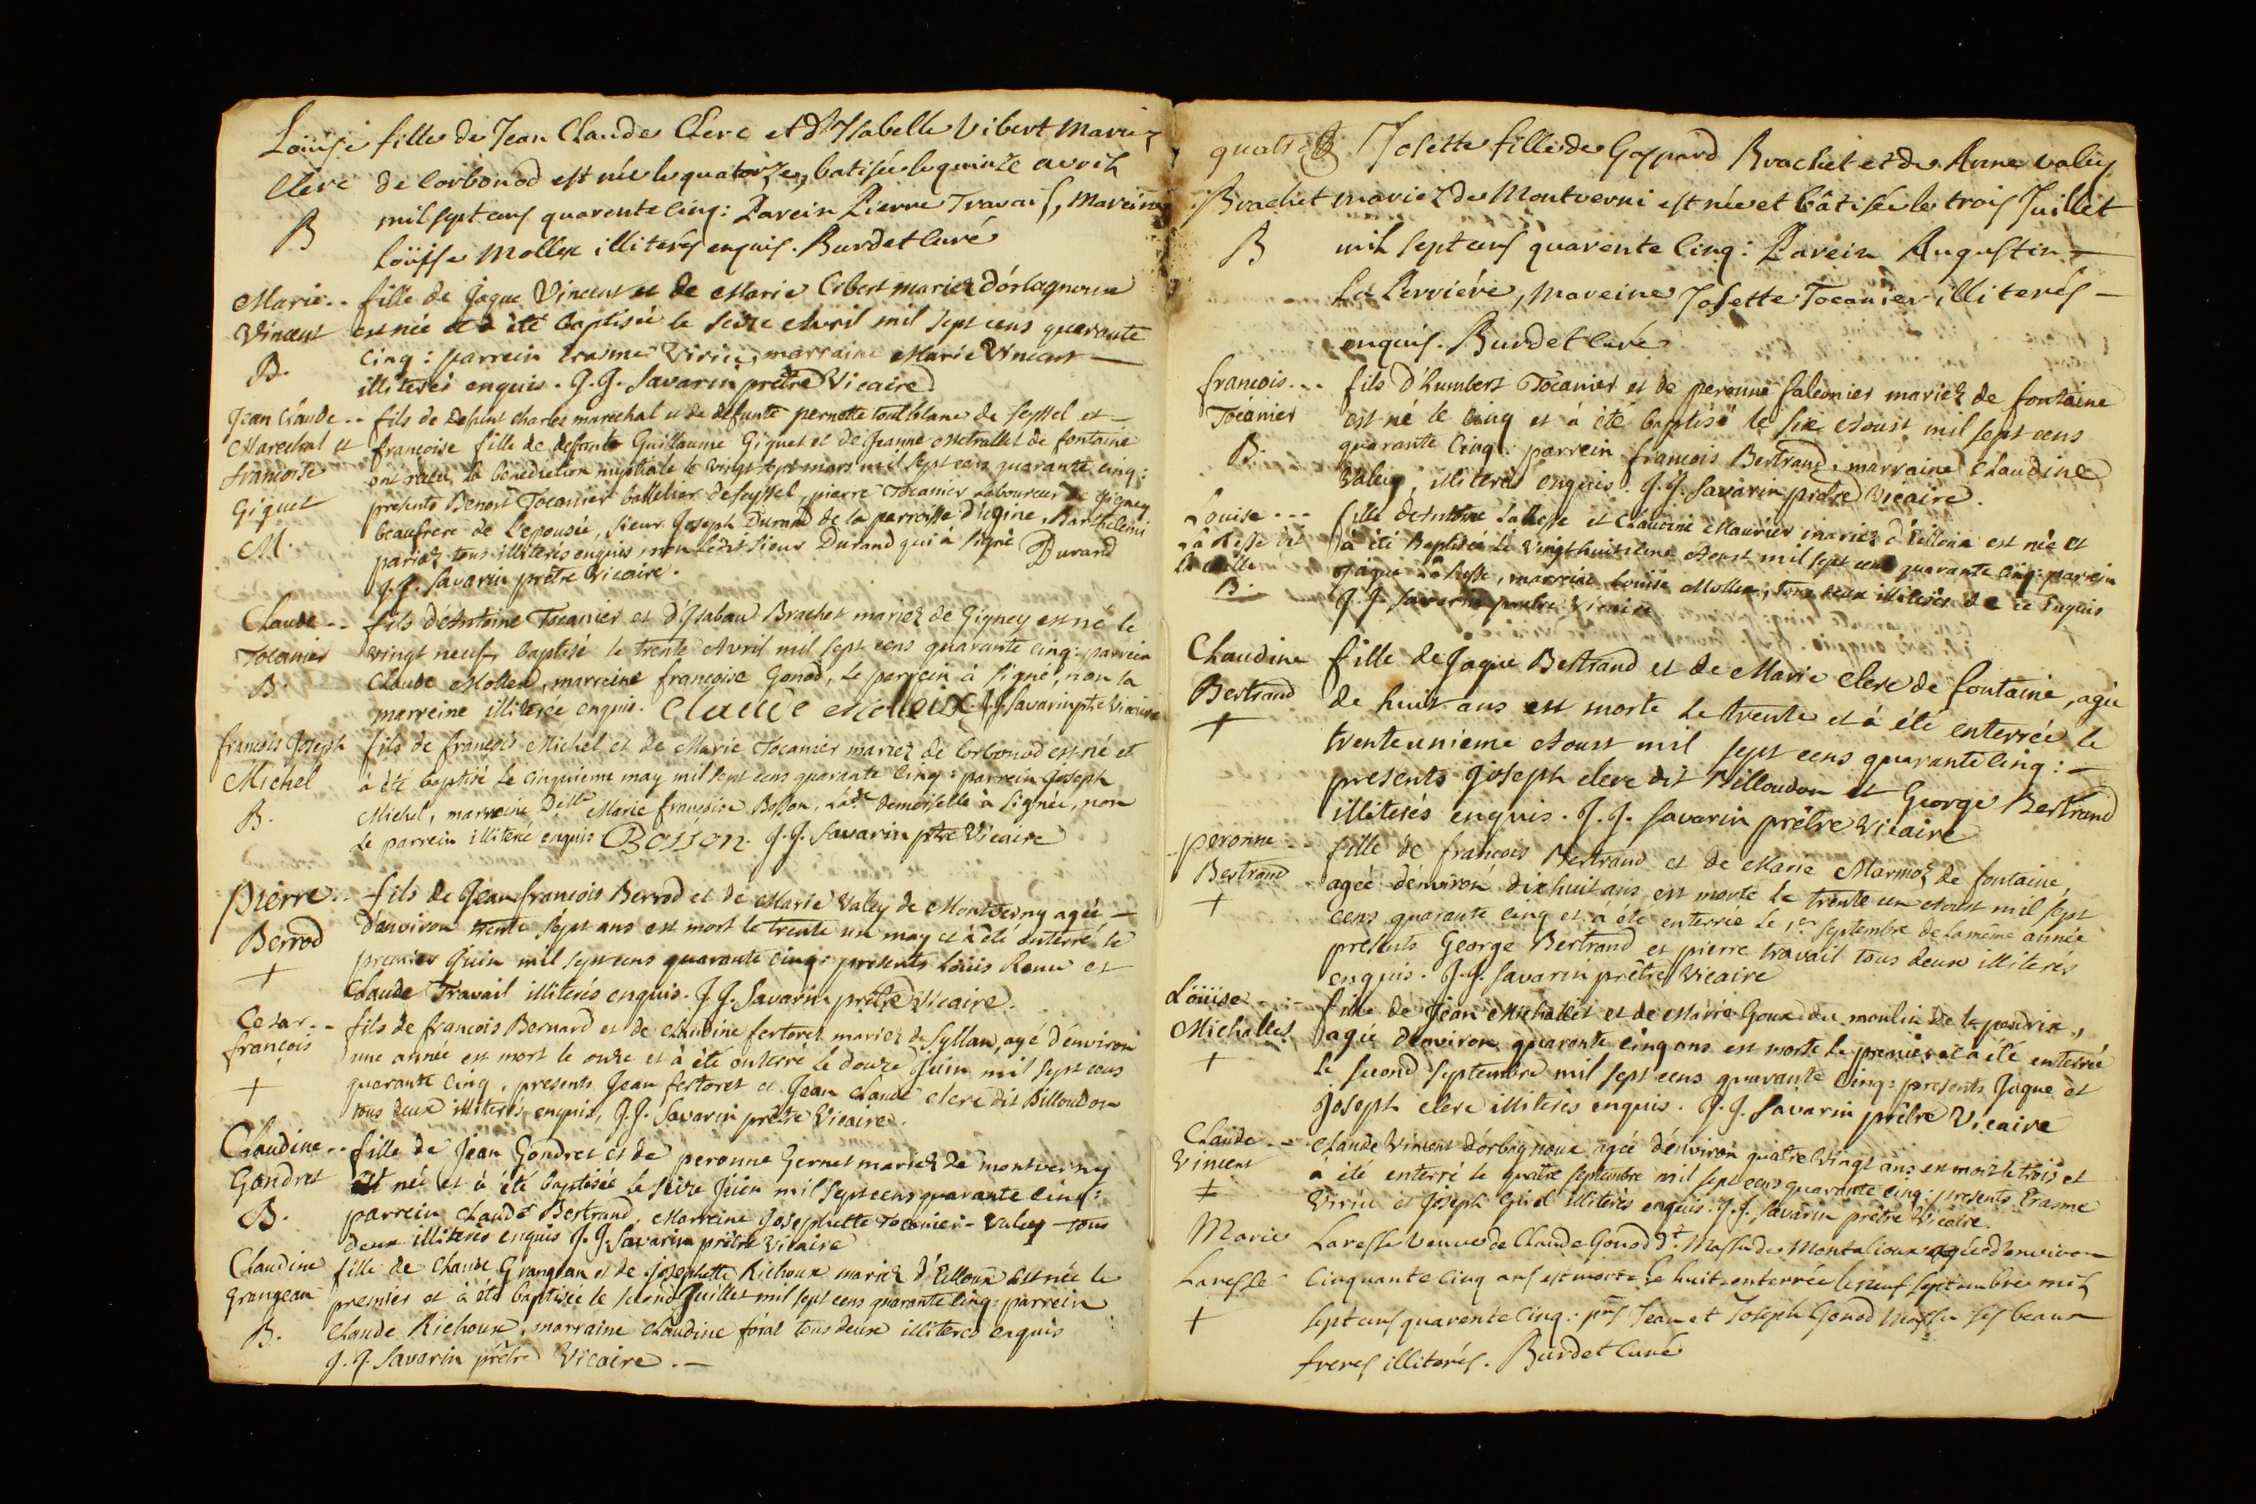 Loüise fille de Jean Claude Clerc et d'Isabelle Vibert Mariez
Clerc de Corbonod est née le quatorze, batisée le quinze avril
B mil sept cens quarente cinq: Parein Pierre Travail, Mareine
Loüise Mollex illiterés enquis. Burdet Curé
Marie .. fille de Jaque Vincent et de Marie Cibert mariez d'orbagnoux
Vincent est née et à été baptisée le seize Avril mil sept cens quarante
B. cinq: parrein Erasme Viriu, marraine Marie Vincent —
illiterés enquis. J. J. Savarin prêtre Vicaire
Jean Claude .. fils de defunt Charles marechal et de defunte pernette toulblanc de Seyssel et —
Marechal et françoise fille de deffunt Guillaume Giguet et de Jeanne de fontaine
francoise ont receu la benediction nuptiale le vingt sept mars mil sept cens quarante cinq:
Giguet presents Benoit Tocanier battelier de Seyssel, pierre Tocanier laboureur de Gigney
M. beaufrere de L'epousée, Sieur Joseph Durand de la parroisse d'ugine, Barthelemi
pariaz tous illiterés enquis, non ledit Sieur Durand qui à signé Durand
J. J. Savarin prêtre Vicaire.
Claude .. fils d'Antoine Tocanier et d'Ysabau Brachet mariez de Gigney est né le
Tocanier vingt neuf, baptisé le trente Avril mil sept cens quarante cinq: parrein
B. Claude Mollex, marreine françoise Gonod, Le parrein à signé, non la
marreine illiterée enquise. Claude Molleix J. J. Savarin ptre Vicaire
francois Joseph fils de françois Michel et de Marie Tocanier mariez de Corbonod est né et
Michel à été baptisé le cinquieme may mil sept cens quarante cinq: parrein Joseph
B. Michel, marraine Delle Marie françoise Bosson, Ladte Demoiselle à signée, non
Le parrein illiteré enquis Bosson. J. J. Savarin ptre Vicaire
Pierre .. fils de Jean françois Berrod et de Marie Valey de Montverny agée —
Berrod d'environ trente sept ans est mort le trente un may et à été enterré le
+ premier Juin mil sept cens quarante cinq: presents Loüis Roux et
Claude Travail illiterés enquis. J. J. Savarin prêtre Vicaire.
Cesar .. fils de francois Bernard et de Claudine fertoret mariez de Syllan, agé d'environ
françois une année est mort le onze et à été enterré le douze Juin mil sept cens
+ quarante cinq, presents Jean fertoret et Jean Claude clerc dit Billoudon
tous deux illiterés enquis, J. J. Savarin prêtre Vicaire.
Claudine .. fille de Jean Gondret et de peronne Gernet mariez de montverny
Gondret est née et à été baptisée le seize Juin mil sept cens quarante cinq:
B. parrein Claude Bertrand, Marreine Josephette Tocanier - Valey - tous
deux illiterés enquis J. J. Savarin prêtre Vicaire
Claudine fille de Claude Grangean et de Josephette Richoux mariez d'Eilloux est née le
Grangean premier et à été baptisée le second Juillet mil sept cens quarante cinq: parrein
B. Claude Richoux, marraine Claudine féral tous deux illiterés enquis
J. J. Savarin prêtre Vicaire. —
quatre Josette fille de Gaspard Brachet et de Anne Valey
Brachet mariez de Montverni est née et bâtisée le trois Juillet
B mil sept cens quarente cinq: Parein Augustin —
La Perriére, Mareine Josette Tocanier illiterés —
enquis. Burdet Curé
francois .. fils d'humbert Tocanier et de peronne falconier mariez de fontaine
Tocanier est né le cinq et à été baptisé le six Aoust mil sept cens
B. quarante cinq: parrein francois Bertrand, marraine Claudine
Valey, illiterés enquis. J. J. Savarin prêtre Vicaire.
Louise ... fille d'Antoine La Resse et Claudine Maurier mariez d'Eilloux est née et
à été Baptisée le vingt huitieme Aoust mil sept cens quarante cinq: parrein
B. Jaque La Resse, marreine Louise Mollex, tous deux illiterés de ce enquis
J. J. Savarin prêtre Vicaire
Claudine fille de Jaque Bertrand et de Marie Clerc de fontaine, agée
Bertrand de huit ans est morte le trente et à été enterrée le
+ trenteunieme Aoust mil sept cens quarante cinq: —
presents Joseph clerc dit Billoudon et George Bertrand
illiterés enquis. J. J. Savarin prêtre Vicaire
peronne .. fille de francois Bertrand et de Marie Marmoz de fontaine,
Bertrand agée d'environ dixhuit ans est morte le trente un Aoust mil sept
+ cens quarante cinq et à été enterrée le 1er septembre de la même année
presents George Bertrand et pierre travail tous deux illiterés
enquis. J. J. Savarin prêtre Vicaire
Loüise .. fille de Jean Michallet et de Marie Goux du moulin de la poudrix,
Michallet agée d'environ quarante cinq ans est morte le premier et à été enterrée
+ le second septembre mil sept cens quarante cinq: presents Jaque et
Joseph clerc illiterés enquis. J. J. Savarin prêtre Vicaire
Claude .. Claude Vincent d'orbagnoux agée d'environ quatre vingt ans est mort le trois et
Vincent à été enterré le quatre septembre mil sept cens quarante cinq: presents Erasme
+ Viriu et Joseph Guiel illiterés enquis. J. J. Savarin prêtre Vicaire.
Marie Laresse Veuve de Claude Gonod dt. Massu de Montalioux agée d'environ
Laresse Cinquante cinq ans est morte le huit, enterrée le neuf septembre mil
+ sept cens quarente cinq: pns Jean et Joseph Gonod Massu ses beaux
freres illiterés. Burdet Curé